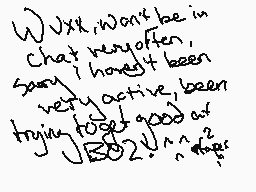 W Vvxx, won't be in
chat very often,
sorry i haven't been
very active, been
trying to get good at
BO2! ^ ^ ^ ?